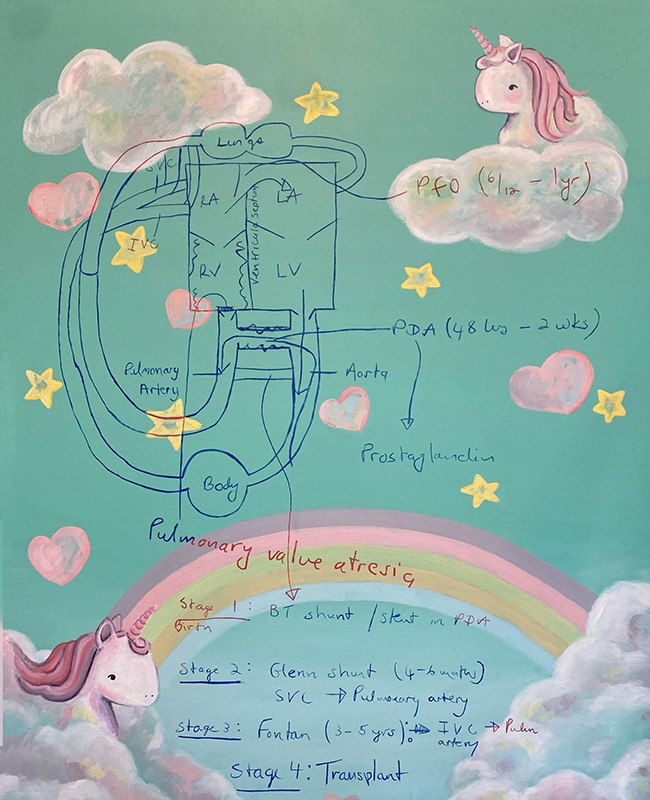 Lungs
SVC
RA
LA
PFO (6/12 - 1yr)
IVC
Ventricular septum
RV
LV
PDA (48 hrs - 2 wks)
Pulmonary
Artery
Aorta
Prostaglandin
Body
Pulmonary valve atresia
Stage 1: BT shunt / stent in PDA
Birth
Stage 2: Glenn shunt (4-6 months)
SVC → Pulmonary artery
Stage 3: Fontan (3-5 yrs): → IVC → Pulm
artery
Stage 4: Transplant